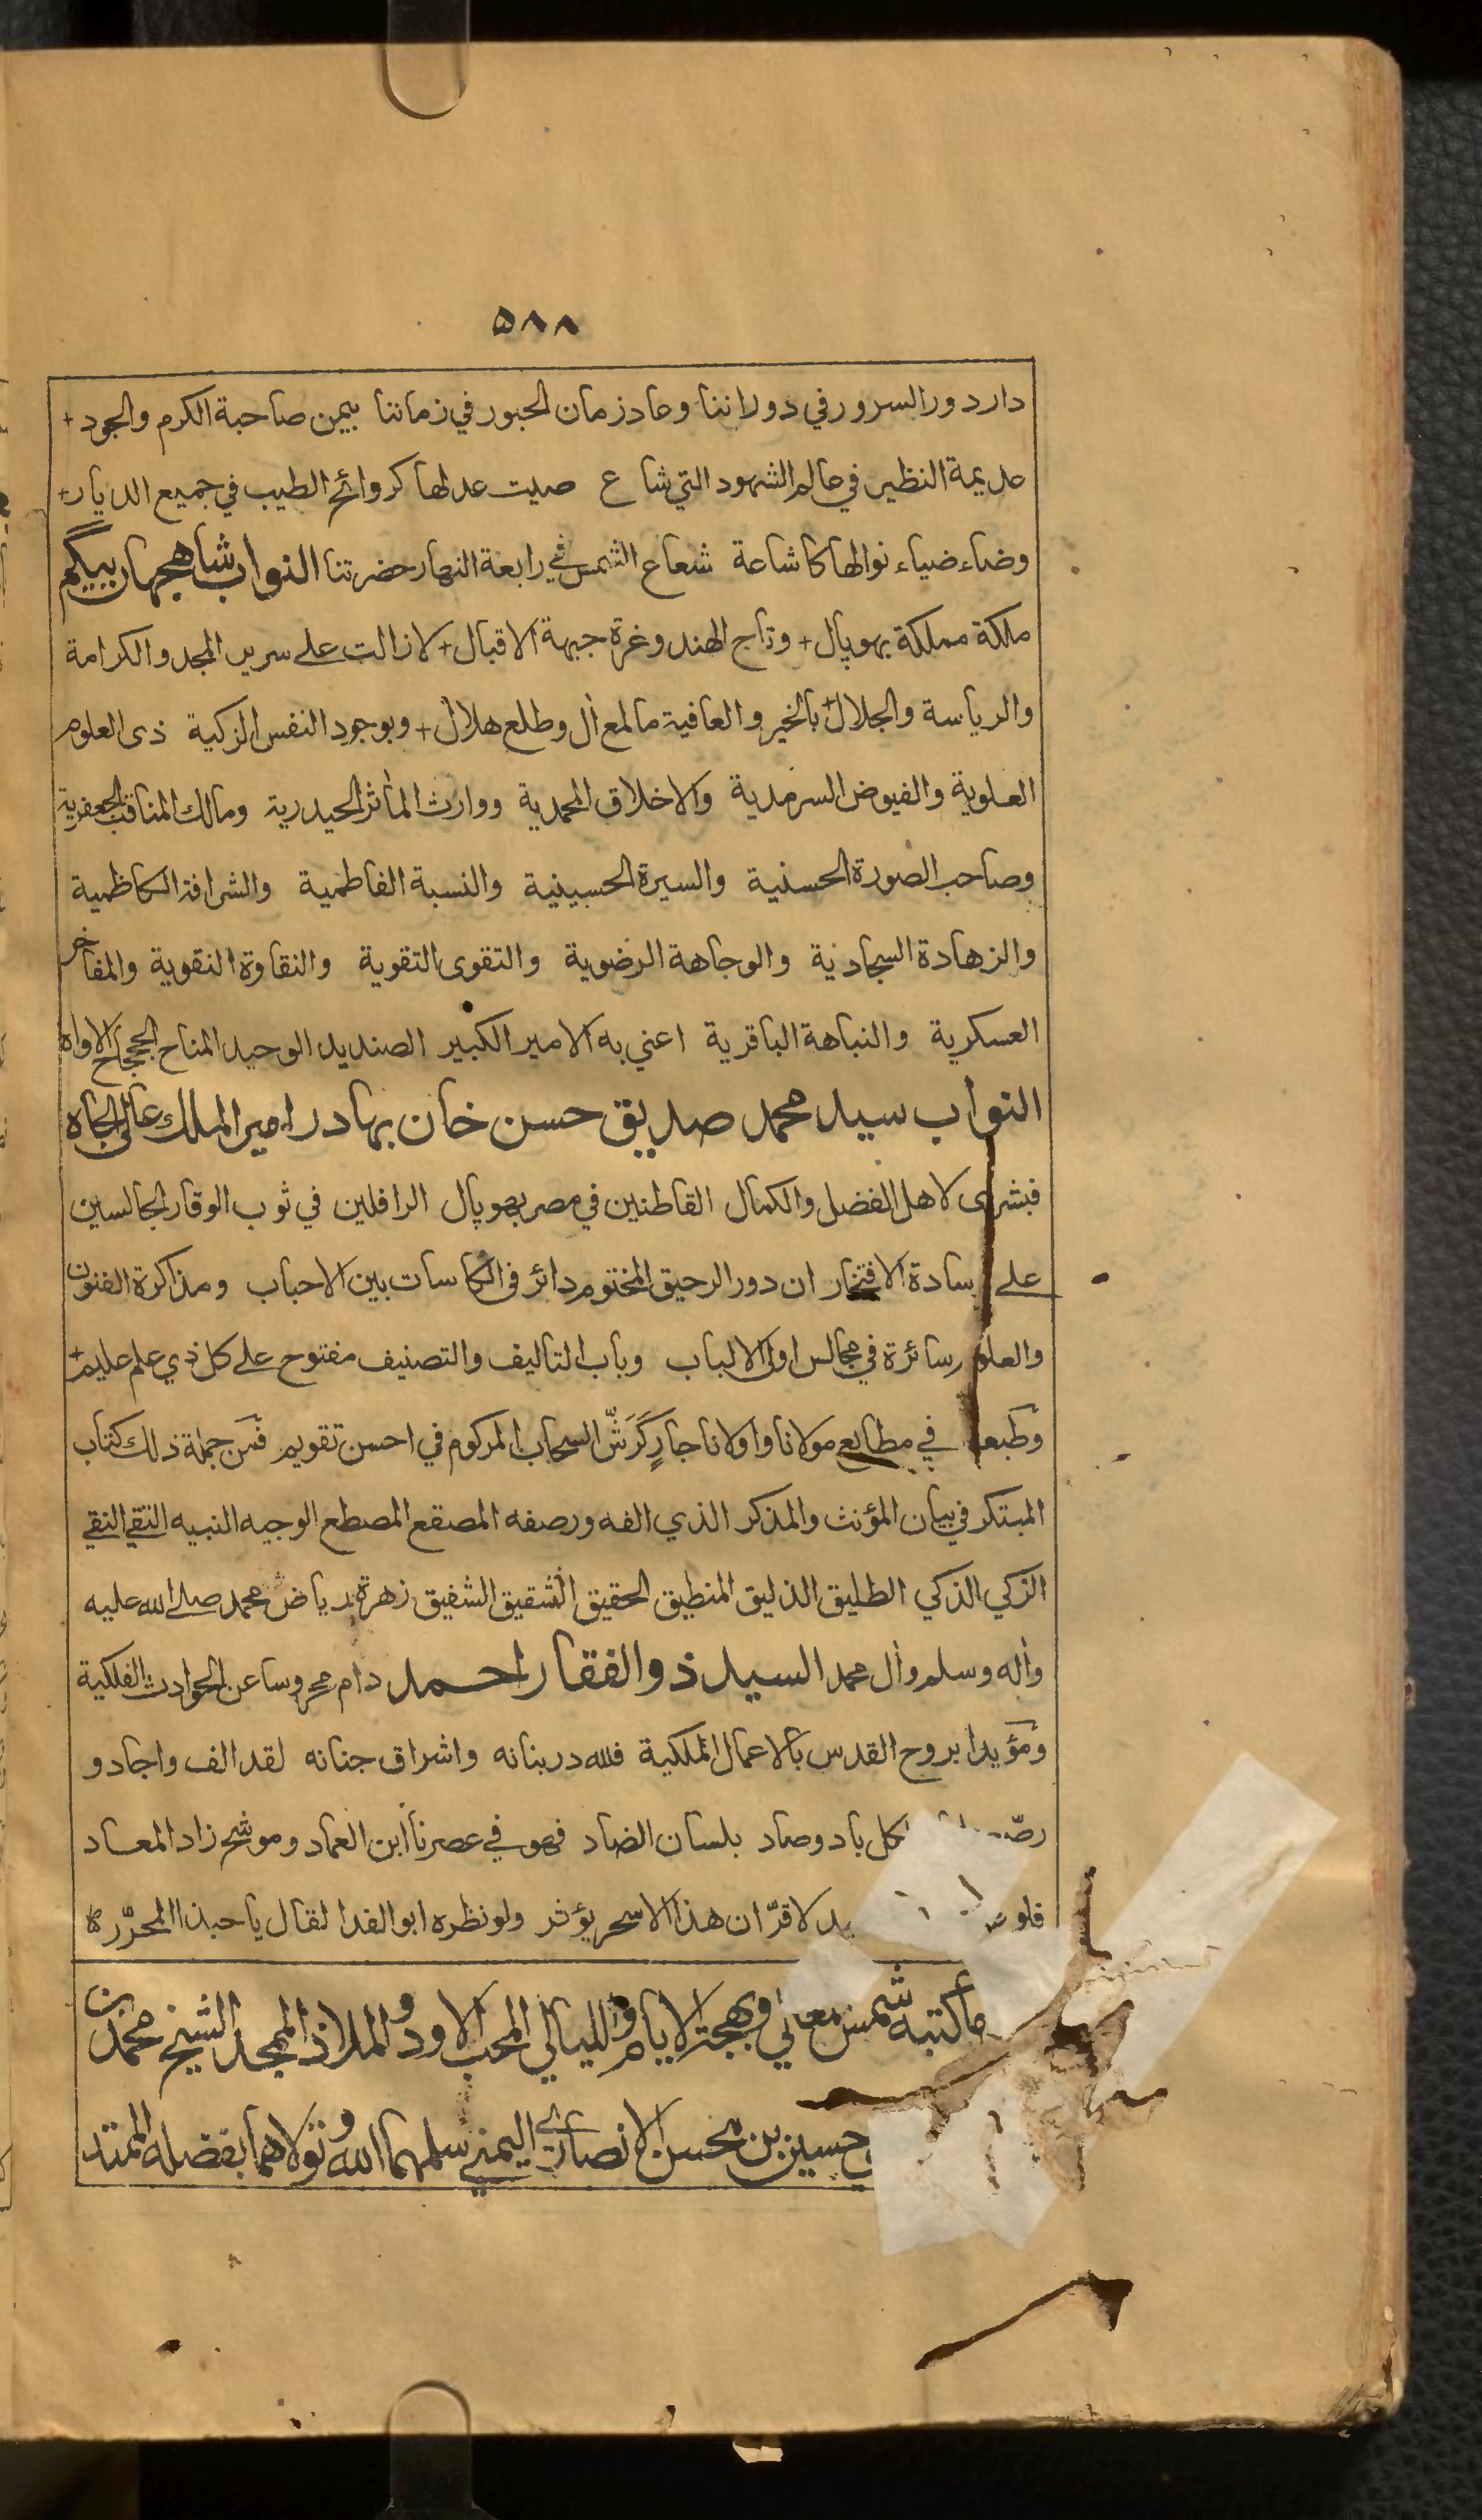 ٥٨٨
دار دور السرور في دوراننا وعاد زمان الحبور في زماننا بيمن صاحبة الكرم والجود +
عديمة النظير في عالم الشهود التي شاع صيت عدلها كروائح الطيب في جميع الديار +
وضاء ضياء نوالها كاشاعة شعاع الشمس في رابعة النهار حضرتنا النواب شاهجهان بيگم
ملكة مملكة بهوپال + وتاج الهند وغرة جبهة الاقبال + لازالت على سرير المجد والكرامة
والرياسة والجلال + بالخير والعافية ما لمع أل وطلع هلال + وبوجود النفس الزكية ذى العلوم
العلوية والفيوض السرمدية والاخلاق المحمدية ووارث المأثر الحيدرية ومالك المناقب الجعفرية
وصاحب الصورة الحسنية والسيرة الحسينية والنسبة الفاطمية والشرافة الكاظمية
والزهادة السجادية والوجاهة الرضوية والتقوى التقوية والنقاوة النقوية والمفاخر
العسكرية والنباهة الباقرية اعني به الامير الكبير الصنديد الوحيد المناح الججاح الاواه
النواب سيد محمد صديق حسن خان بهادر امير الملك عالى الجاه
فبشرى لاهل الفضل والكمال القاطنين في مصر بهوپال الرافلين في ثوب الوقار الجالسين
على سادة الافتخار ان دور الرحيق المختوم دائر فى الكاسات بين الاحباب ومذاكرة الفنون
والعلوم سائرة في مجالس اولى الالباب وباب التاليف والتصنيف مفتوح على كل ذي علم عليم +
وطبعها في مطابع مولانا واولانا جارٍ كَرَشِّ السحاب المركوم في احسن تقويم فمن جملة ذلك كتاب
المبتكر في بيان المؤنث والمذكر الذي الفه ورصفه المصقع المصطع الوجيه النبيه التقي النقي
الزكي الذكي الطليق الذليق المنطيق الحقيق الشقيق الشفيق زهرة رياض محمد صلى الله عليه
وأله وسلم وأل محمد السيد ذو الفقار احمد دام محروسا عن الحوادث الفلكية
ومؤيدا بروح القدس بالاعمال الملكية فلله در بنانه واشراق جنانه لقد الف واجاد و
رصّـ لكل باد وصاد بلسان الضاد فهو في عصرنا ابن العماد وموشح زاد المعاد
فلو يد لاقرّ ان هذا الاسحر يؤثر ولو نظره ابو الفدا لقال يا حبذا المحرّر
ما كتبه شمس معالي وبهجة الايام والليالي المحب الاود والملاذ الامجد الشيخ محمد بن
حسين بن محسن الانصارى اليمنى سلمهما الله وتولاهما بفضله الممتد